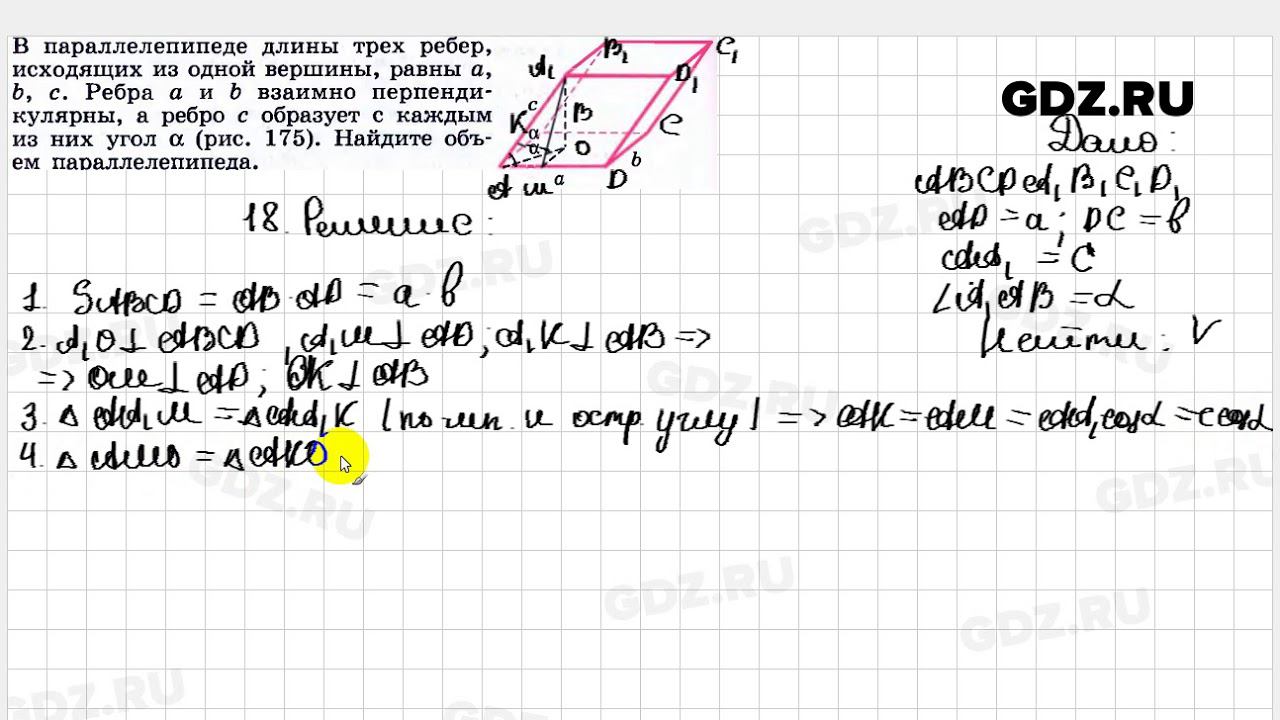 В параллелепипеде длины трех ребер,
исходящих из одной вершины, равны a,
b, c. Ребра a и b взаимно перпенди-
кулярны, а ребро c образует с каждым
из них угол α (рис. 175). Найдите объ-
ем параллелепипеда.
B₁ C₁
A₁ D₁
c B
K α C
α O b
A M a D
GDZ.RU
Дано:
ABCDA₁B₁C₁D₁
AD = a; DC = b
AA₁ = C
∠A₁AB = α
Найти: V
18. Решение:
1. SABCD = AB·AD = a·b
2. A₁O⊥ABCD, A₁M⊥AD; A₁K⊥AB =>
=> OM⊥AD; OK⊥AB
3. △AA₁M = △AA₁K (по гип. и остр. углу) => AK = AM = AA₁cosα = c cosα
4. △AMO = △AKO
GDZ.RU
GDZ.RU
GDZ.RU
GDZ.RU
GDZ.RU
GDZ.RU
GDZ.RU
GDZ.RU
GDZ.RU
GDZ.RU
GDZ.RU